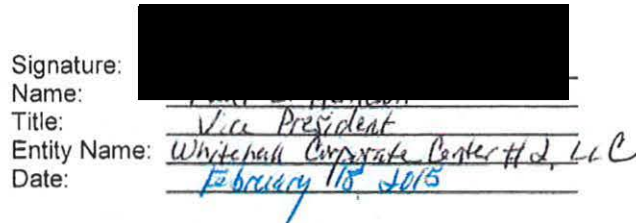 Signature:
Name:
Title: Vice President
Entity Name: Whitehall Corporate Center #2, LLC
Date: February 18 2015